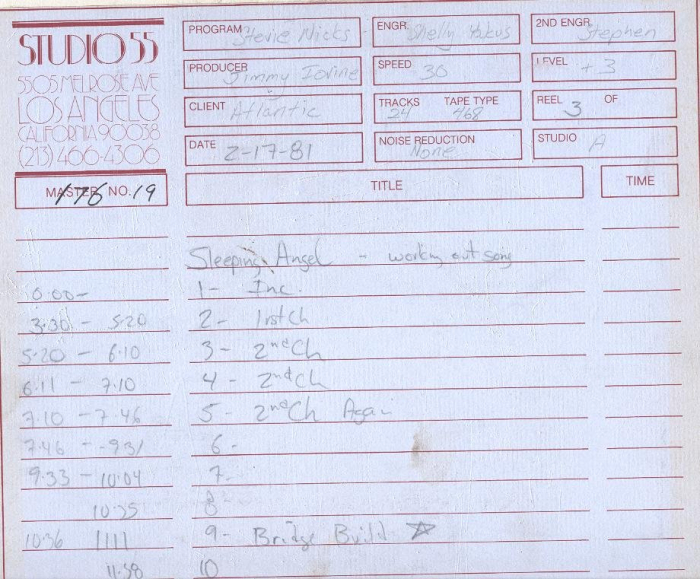 STUDIO 55
5505 MELROSE AVE
LOS ANGELES
CALIFORNIA 90038
(213) 466-4306
PROGRAM Stevie Nicks
ENGR. Shelly Yakus
2ND ENGR. Stephen
PRODUCER Jimmy Iovine
SPEED 30
LEVEL +3
CLIENT Atlantic
TRACKS 24 TAPE TYPE 468
REEL 3 OF
DATE 2-17-81
NOISE REDUCTION None
STUDIO A
MASTER NO. 19
TITLE
TIME
Sleeping Angel - working out song
0:00- 1- Inc.
3:30 - 5:20 2- 1rst Ch
5:20 - 6:10 3- 2nd Ch
6:11 - 7:10 4- 2nd Ch
7:10 - 7:46 5- 2nd Ch Again
7:46 - 9:31 6-
9:33 - 10:04 7-
8-
10:36 1111 9- Bridge Build ☆
11:58 10